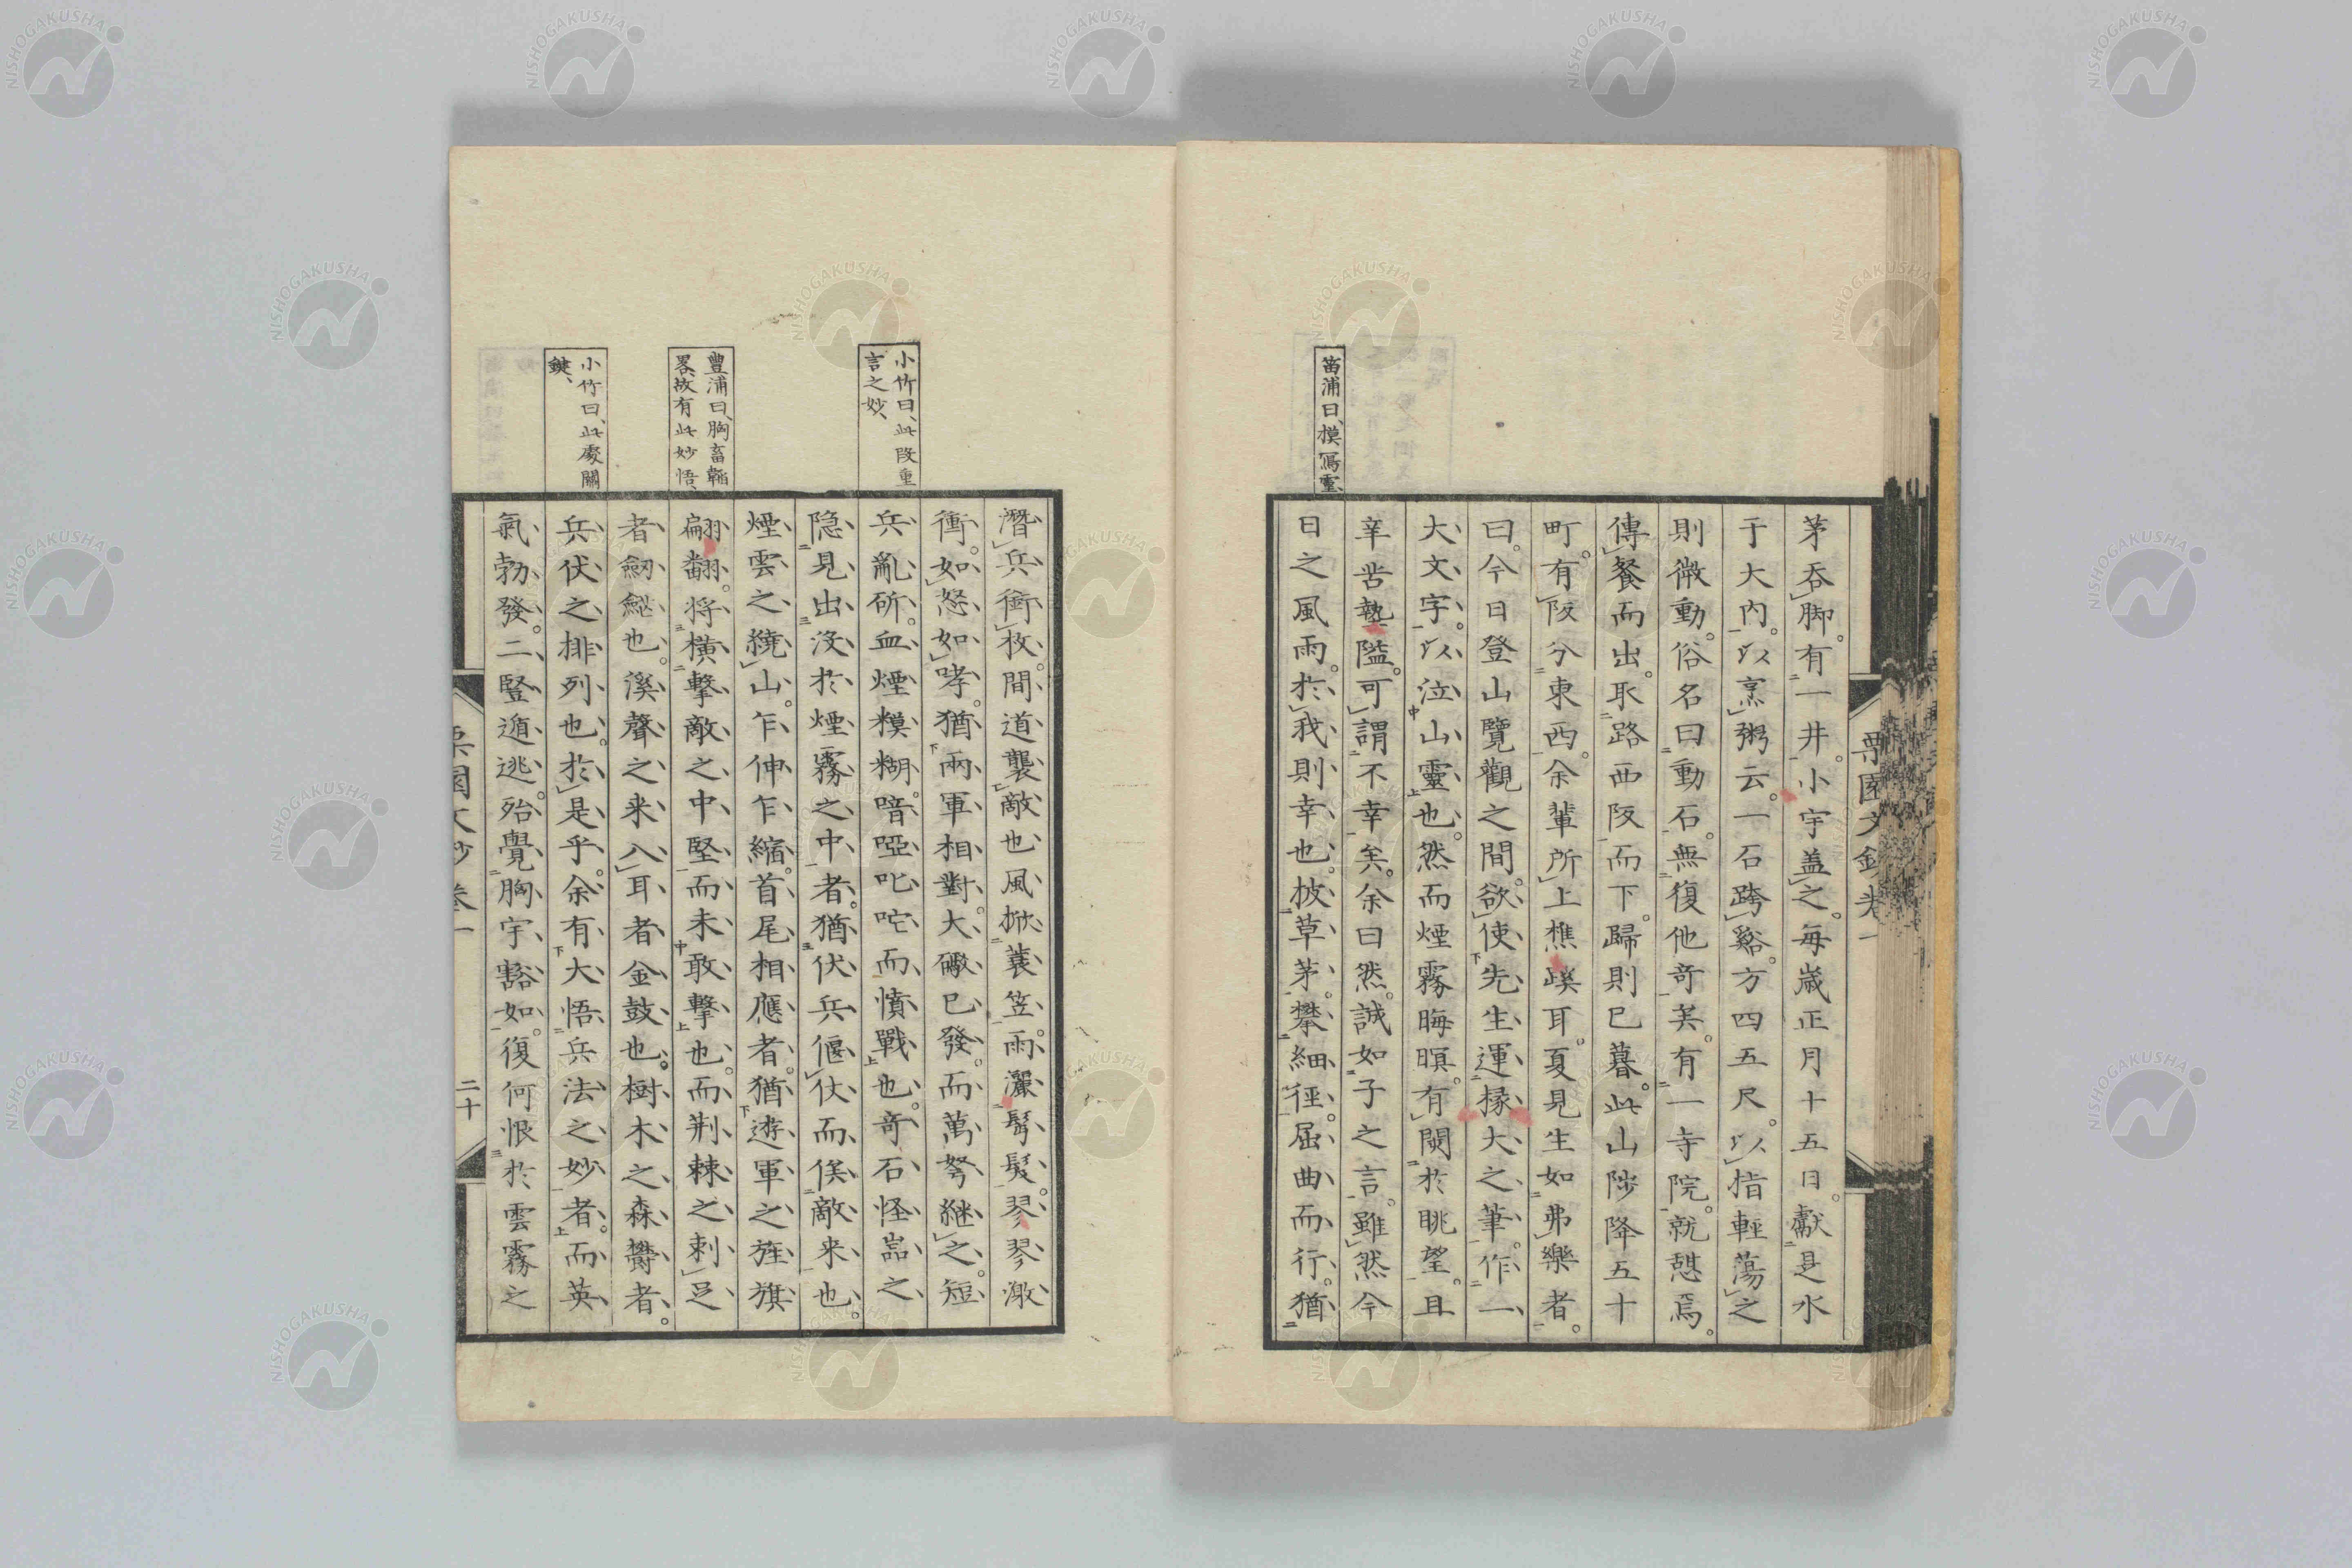 茅吞脚。有一井。小宇蓋之。每歲正月十五日。獻是水
于大內。以烹粥云。一石跨谿。方四五尺。以指輕蕩之
則微動。俗名曰動石。無復他奇矣。有一寺院。就憩焉。
傳餐而出。取路西阪而下。歸則已暮。此山陟降五十
町。有阪分東西。余輩所上樵蹊耳。夏見生如弗樂者。
曰。今日登山覽觀之間。欲使先生運椽大之筆。作一
大文字。以泣山靈也。然而煙霧晦暝。有閡於眺望。且
辛苦墊隘。可謂不幸矣。余曰然。誠如子之言。雖然今
苗浦曰、模寫靈
日之風雨。於我則幸也。披草茅。攀細徑。屈曲而行。猶
潛兵銜枚。間道襲敵也風掀蓑笠。雨灑鬢髮。琴琴潡
衝。如怒如哮。猶兩軍相對。大礮已發。而萬弩継之。短
小竹曰、此段重
言之妙、
兵亂斫。血煙糢糊。喑啞叱咤而憤戰也。奇石怪嵓之
隐見出没於煙霧之中者。猶伏兵偃仗而俟敵来也。
煙雲之繞山。乍伸乍縮。首尾相應者。猶遊軍之旌旗
豐浦曰、胸畜韜
畧、故有此妙悟、
翩翻。将横擊敵之中堅而未敢擊也。而荆棘之刺足
者劔鋩也。溪聲之来入耳者金鼓也。樹木之森欝者。
小竹曰、此處關
鍵、
兵伏之排列也。於是乎。余有大悟兵法之妙者。而英
氣勃發。二豎遁逃。殆覺胸宇豁如。復何恨於雲霧之
栗園文鈔卷一
二十